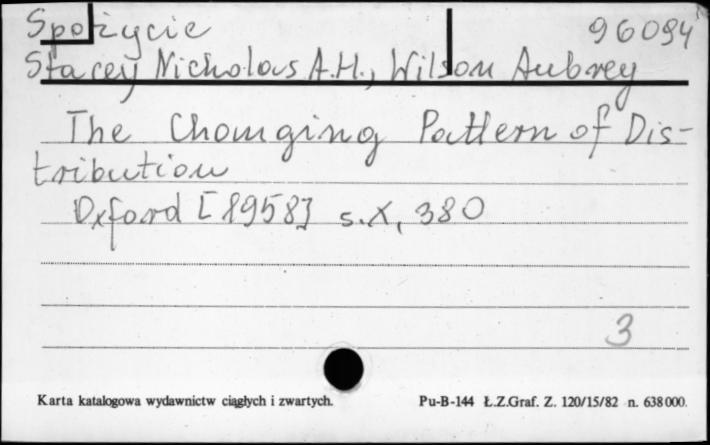 Spożycie 96094
Stacey Nicholas A.H., Wilson Aubrey
The Changing Pattern of Dis-
tribution
Oxford [1958] s.X, 380
3
Karta katalogowa wydawnictw ciągłych i zwartych. Pu-B-144 Ł.Z.Graf. Z. 120/15/82 n. 638000.